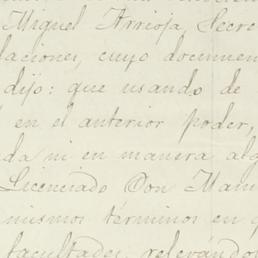 Miguel Arrioja Secre
laciones, cuyo documen
dijo: que usando de
en el anterior poder,
da ni en manera alg
Licenciado Don Man
mismos términos en q
facultades, relevándo